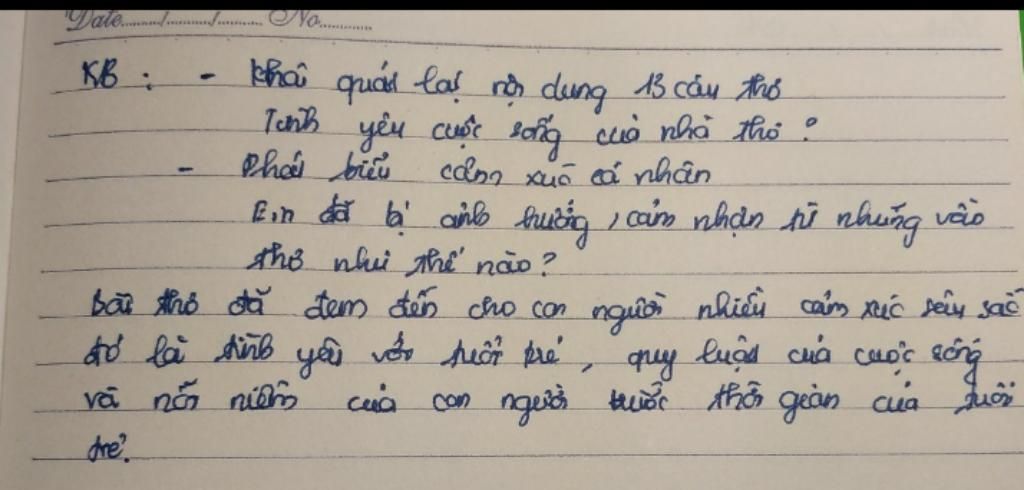 Date......./......./....... No............
KB : - Khái quát lại nội dung 13 câu thơ
Tình yêu cuộc sống của nhà thơ ?
- Phát biểu cảm xúc cá nhân
Em đã bị ảnh hưởng, cảm nhận từ những vần
thơ như thế nào ?
Bài thơ đã đem đến cho con người nhiều cảm xúc sâu sắc
đó là tình yêu với tuổi trẻ, quy luật của cuộc sống
và nỗi niềm của con người trước thời gian của tuổi
trẻ.